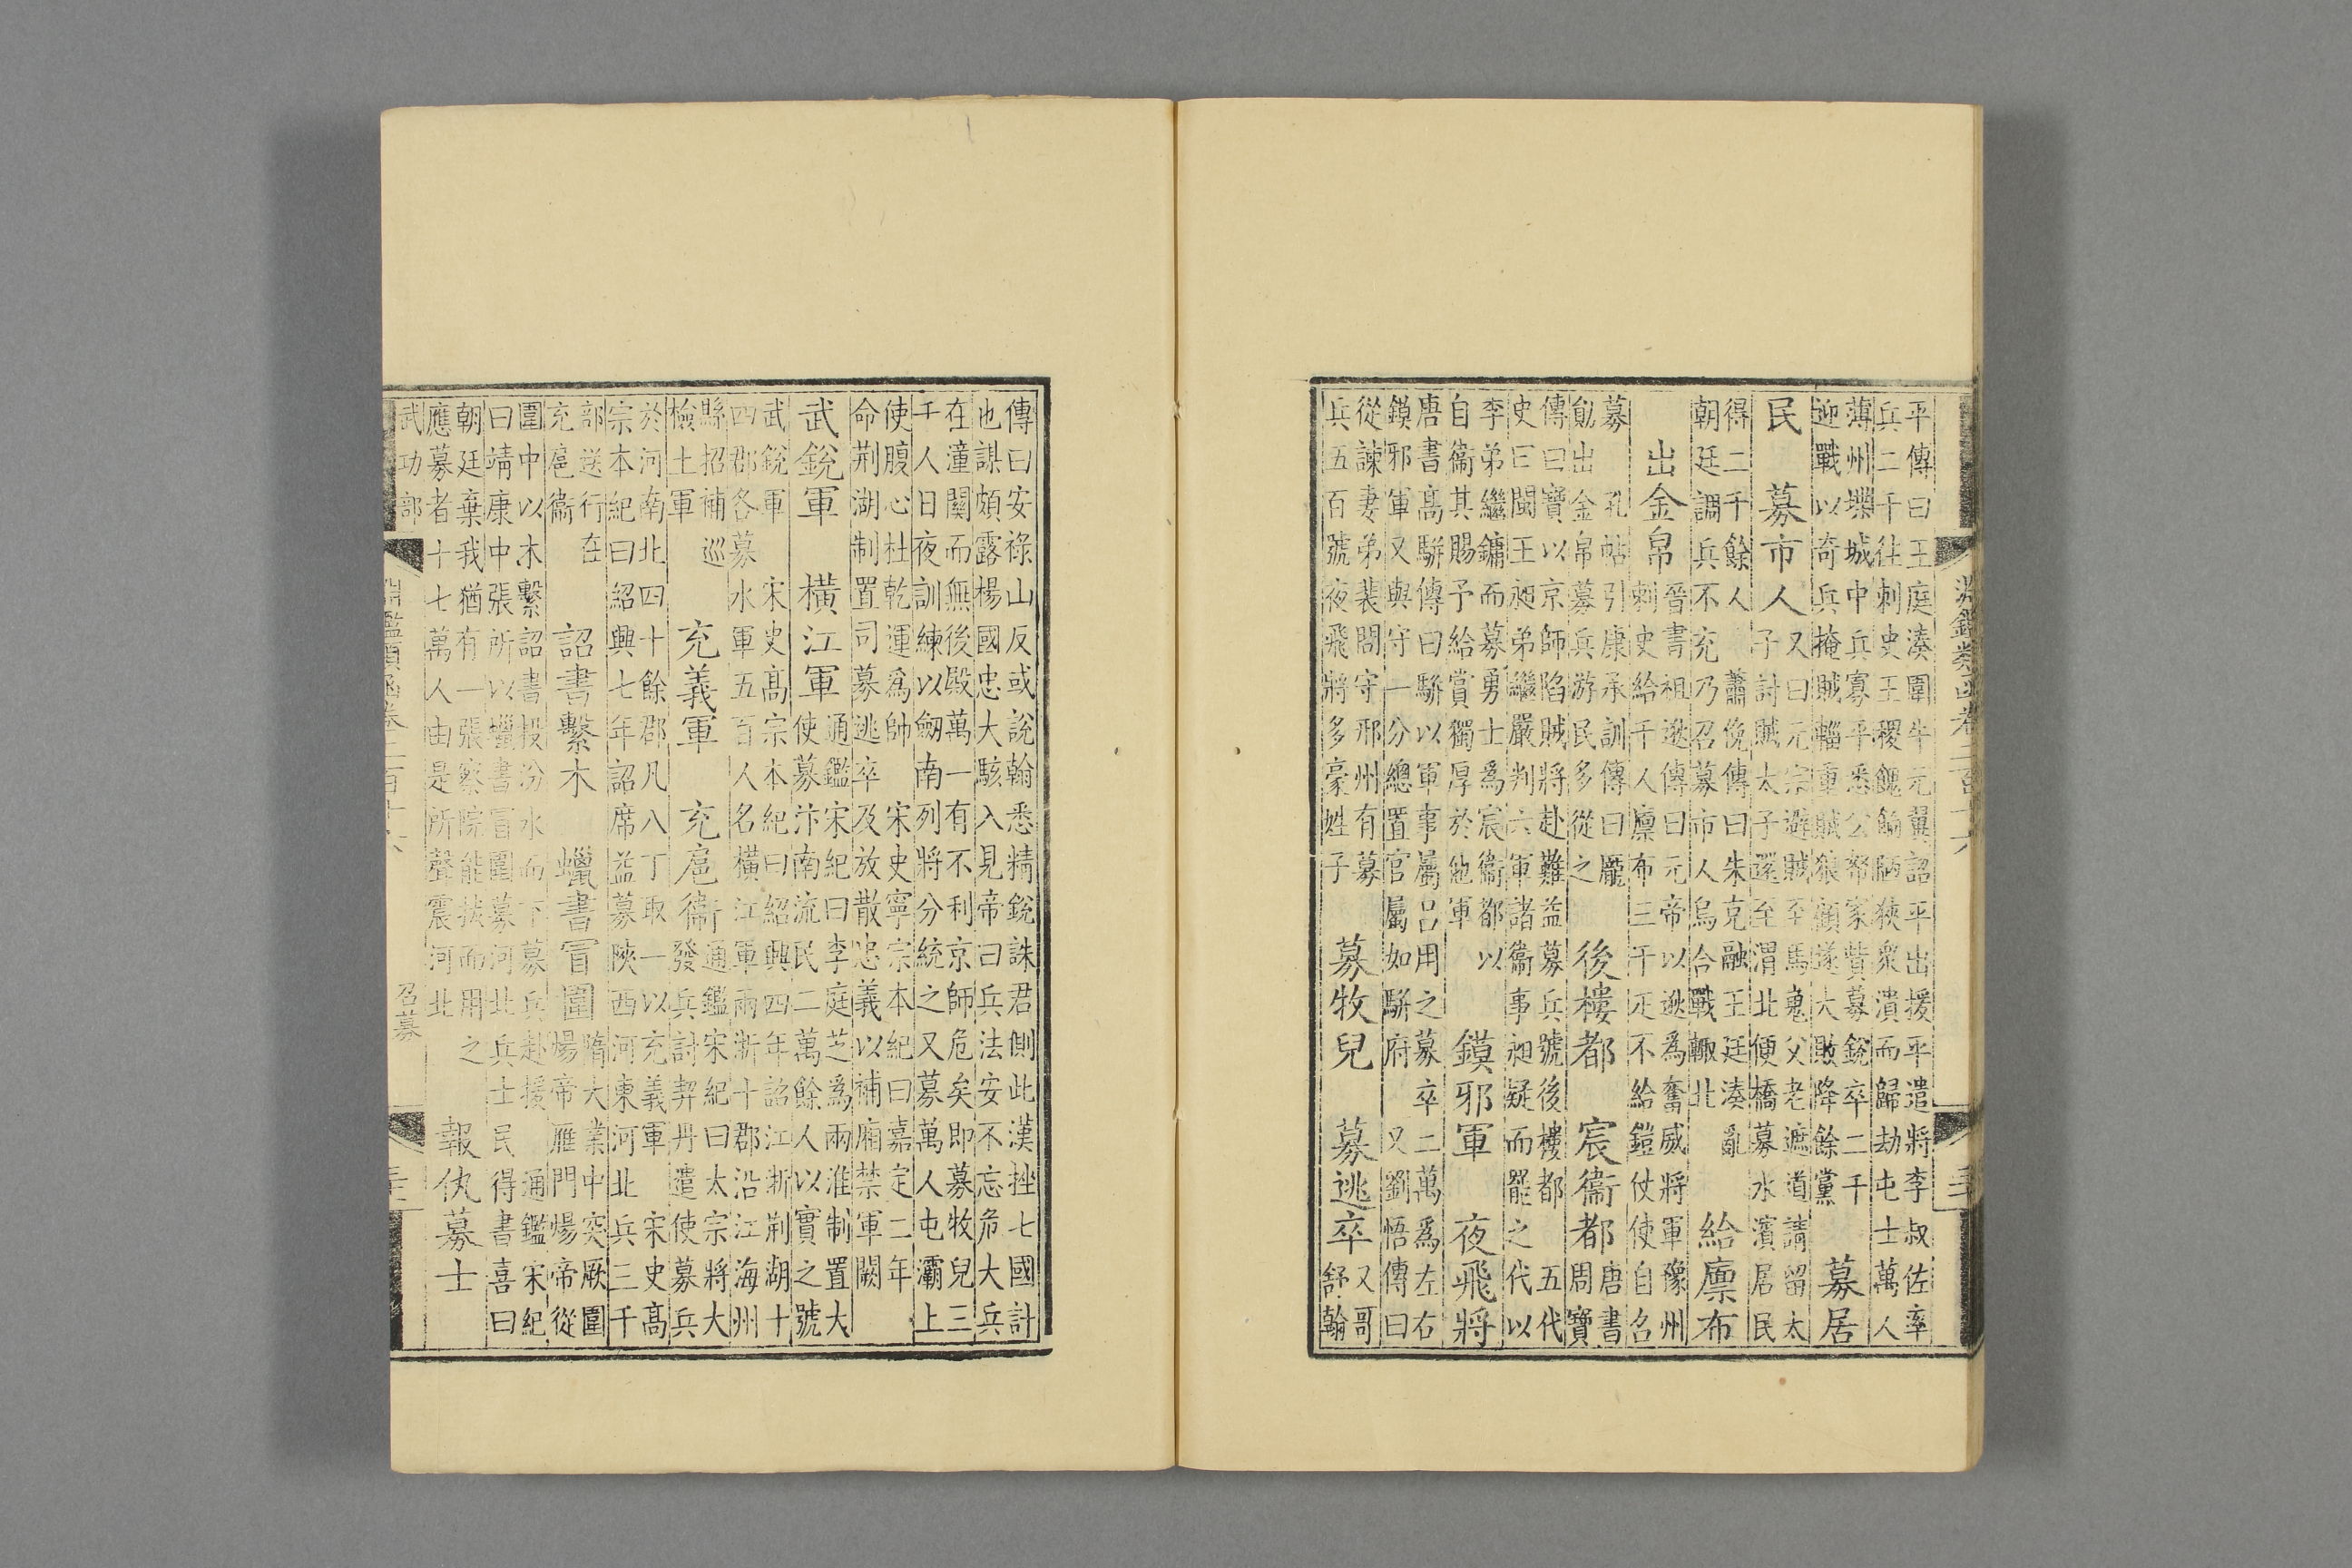 淵鑑類函卷二百十六
平傳曰王庭湊圍牛元翼詔平出援平遣將李叔佐率
兵二千往刺史王稷餽餉陋狹衆潰而歸劫屯士萬人
薄州壖城中兵寡平悉公帑家貲募銳卒二千
迎戰以奇兵掩賊輜重賊狼顧遂大敗降餘黨 募居
民 募市人 又曰元宗避賊至馬嵬父老遮道請留太
子討賊太子還至渭北便橋募水濱居民
得二千餘人 蕭俛傳曰朱克融王廷湊亂
朝廷調兵不充乃召募市人烏合戰輒北 給廩布
出金帛 晉書祖逖傳曰元帝以逖為奮威將軍豫州
刺史給千人廩布三千疋不給鎧仗使自召
募 孔帖引康承訓傳曰龎
勛出金帛募兵游民多從之 後樓都 宸衞都 唐書
周寶
傳曰寶以京師陷賊將赴難益募兵號後樓都 五代
史曰閩王昶弟繼嚴判六軍諸衞事昶疑而罷之代以
李弟繼鏞而募勇士為宸衞都以
自衞其賜予給賞獨厚於他軍 鏌邪軍 夜飛將
唐書高駢傳曰駢以軍事屬呂用之募卒二萬為左右
鏌邪軍又與守一分總置官屬如駢府 又劉悟傳曰
從諫妻弟裴問守邢州有募
兵五百號夜飛將多豪姓子 募牧兒 募逃卒 又哥
舒翰
傳曰安祿山反或說翰悉精銳誅君側此漢挫七國計
也謀頗露楊國忠大駭入見帝曰兵法安不忘危大兵
在潼關而無後殿萬一有不利京師危矣即募牧兒三
千人日夜訓練以劒南列將分統之又募萬人屯灞上
使腹心杜乾運為帥 宋史寧宗本紀曰嘉定二年
命荆湖制置司募逃卒及放散忠義以補廂禁軍闕
武銳軍 橫江軍 通鑑宋紀曰李庭芝為兩淮制置大
使募汴南流民二萬餘人以實之號
武銳軍 宋史高宗本紀曰紹興四年詔江浙荆湖十
四郡各募水軍五百人名橫江軍兩浙十郡沿江海州
縣招補巡
檢土軍 充義軍 充扈衞 通鑑宋紀曰太宗將大
發兵討契丹遣使募兵
於河南北四十餘郡凡八丁取一以充義軍 宋史高
宗本紀曰紹興七年詔席益募陝西河東河北兵三千
部送行在
充扈衞 詔書繫木 蠟書冒圍 隋大業中突厥圍
煬帝雁門煬帝從
圍中以木繫詔書投汾水而下募兵赴援 通鑑宋紀
曰靖康中張所以蠟書冒圍募河北兵士民得書喜曰
朝廷棄我猶有一張察院能拔而用之
應募者十七萬人由是所聲震河北 報仇募士
武功部
淵鑑類函卷二百十六
召募